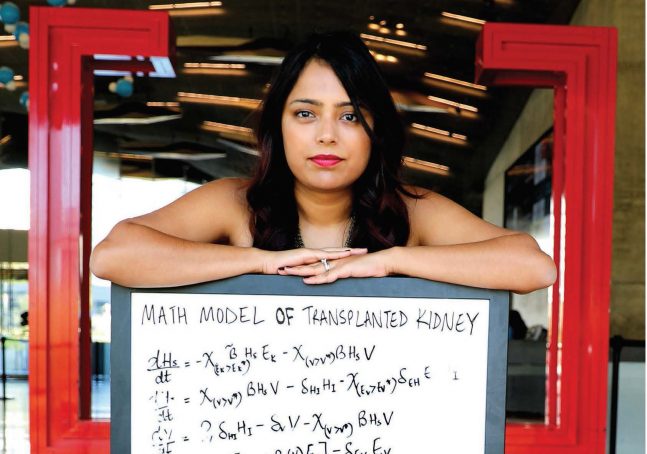 MATH MODEL OF TRANSPLANTED KIDNEY
dHs/dt = -χ(Eₖ>Eₖ*) β̃ Hs Eₖ - χ(V>V*) βHsV
= χ(V>V*) βHsV - δHI HI - χ(Eᵥ>Eᵥ*) δEH E I
δHI HI - δᵥV - χ(V>V*) βHsV